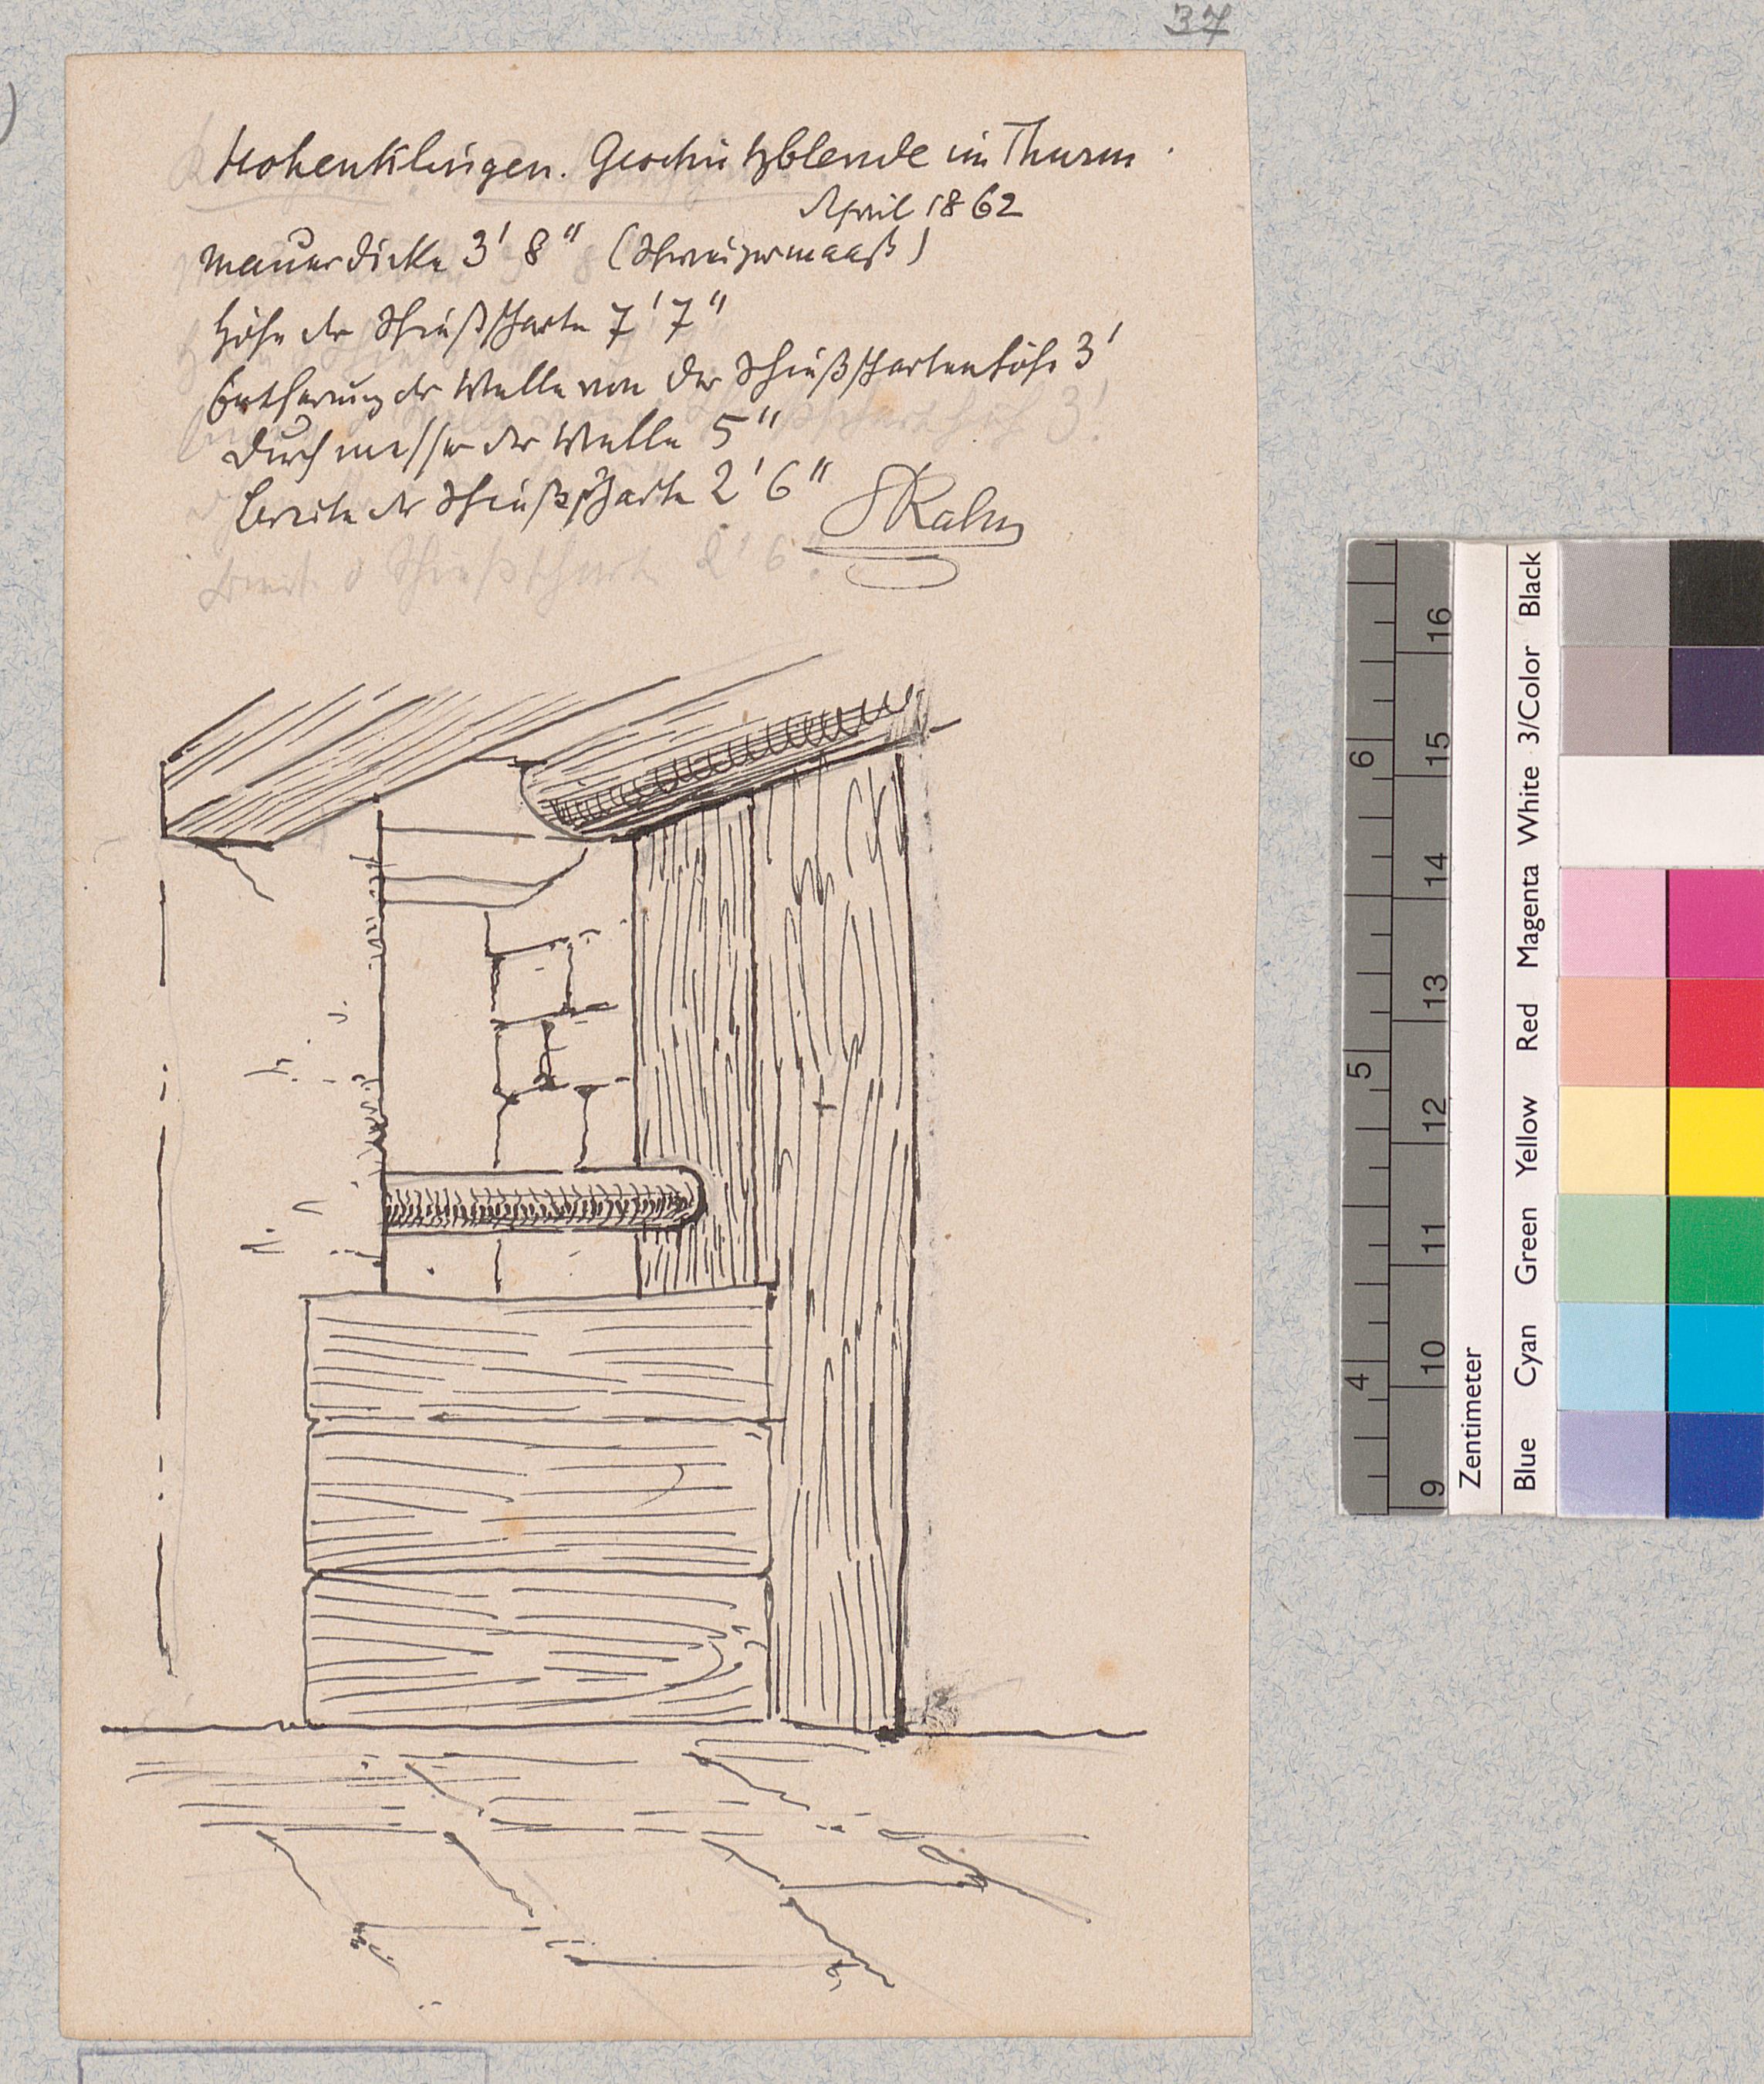 37
Hohenklingen. Geschützblende im Thurm.
April 1862
Mauerdicke 3' 8" (Schweizermaaß)
Höhe der Schießscharte 7' 7"
Entfernung der Welle von der Schießschartenhöhe 3'
Durchmesser der Welle 5"
Breite der Schießscharte 2' 6"
Rahn
Breite d Schießscharte 2' 6".
16
15
14
13
12
11
10
9
6
5
4
Zentimeter
Blue Cyan Green Yellow Red Magenta White 3/Color Black